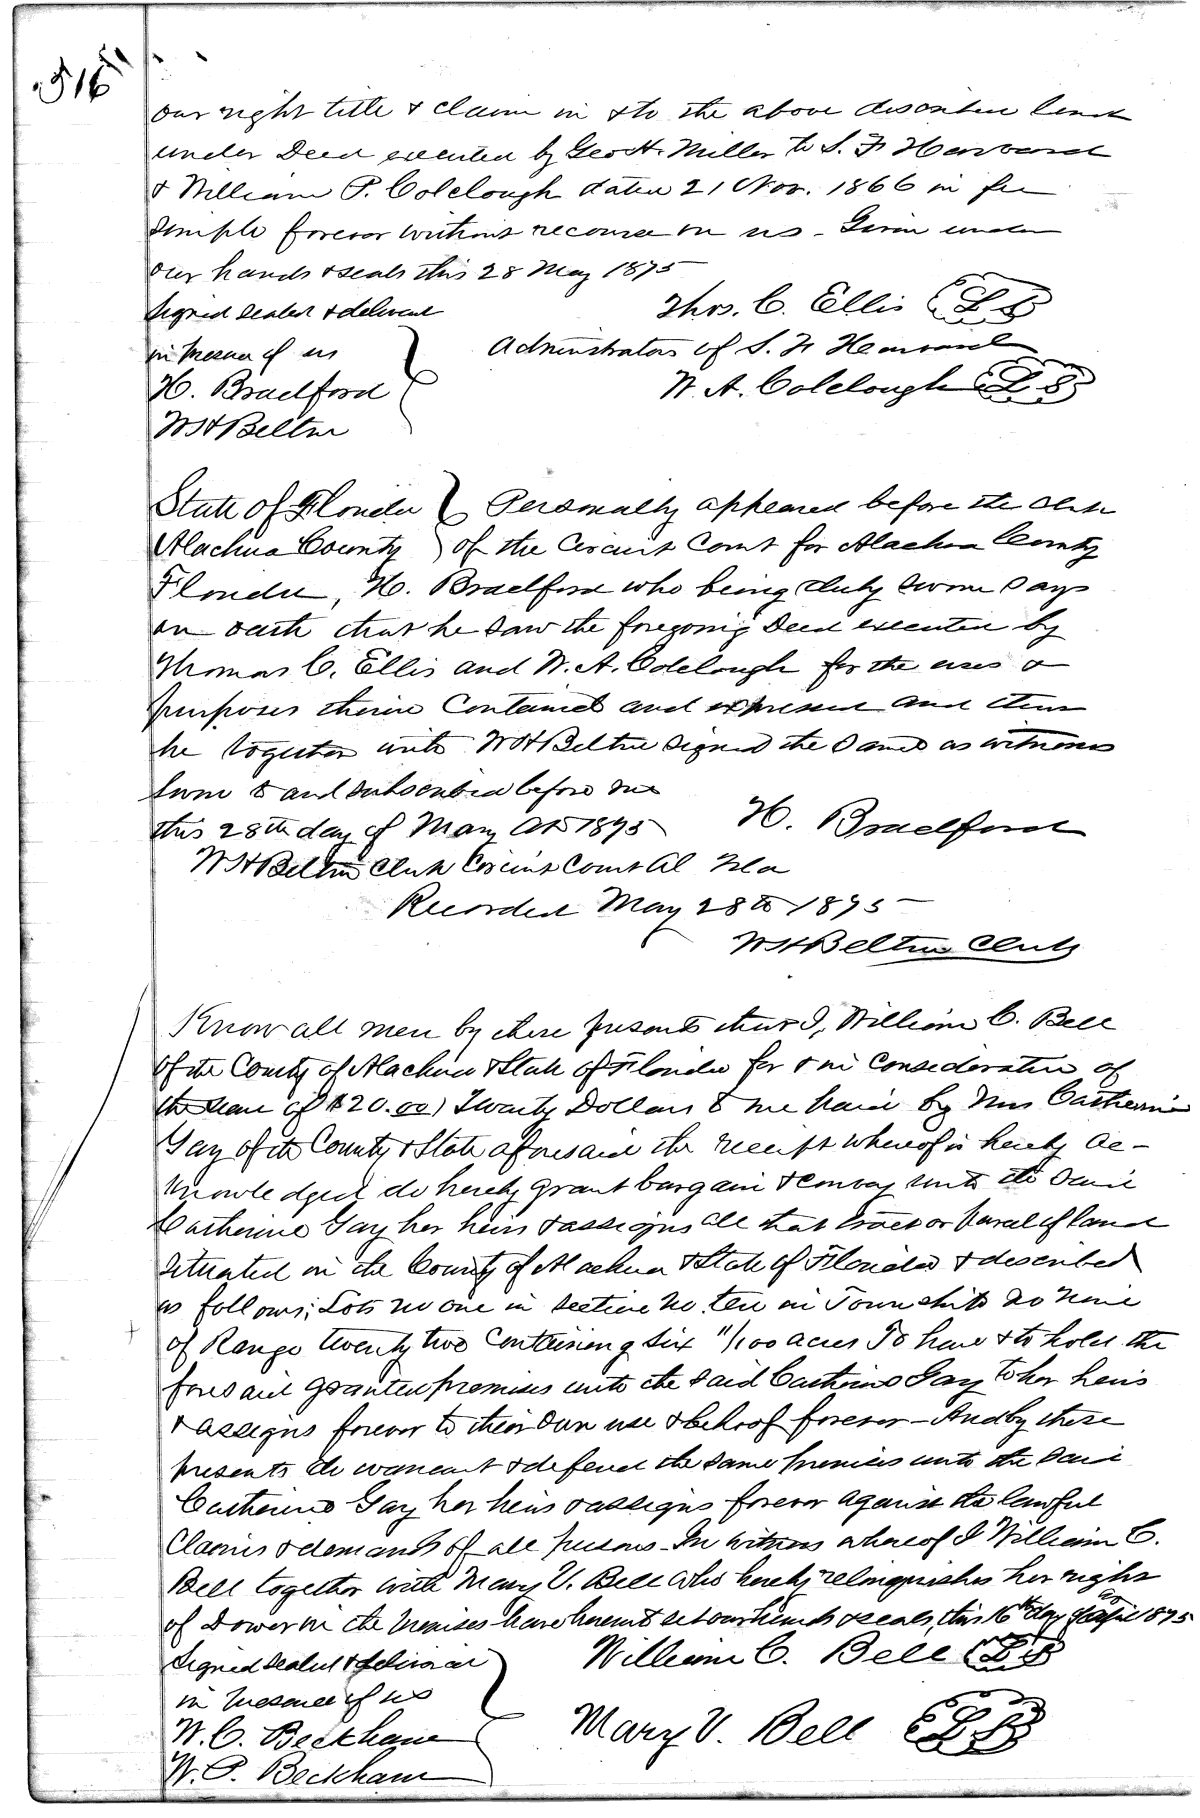 516
our right title & claim in & to the above described land
under Deed executed by Geo H. Miller to S. F. Harvard
& William P. Colclough dated 21 Nov. 1866 in fee
simple forever without recourse on us - Given under
our hands & seals this 28 May 1875
Signed sealed & delivered
Thos. C. Ellis (L S)
in presence of us
Administrators of S. F. Harvard
H. Bradford
W. A. Colclough (L S)
WH Belton
State of Florida } Personally appeared before the Clerk
Alachua County } of the Circuit Court for Alachua County
Florida, H. Bradford who being duly sworn says
on oath that he saw the foregoing Deed executed by
Thomas C. Ellis and W. A. Colclough for the uses &
purposes therein Contained and expressed and that
he together with WH Belton signed the same as witness
Sworn to and subscribed before me
this 28th day of May AD 1875
H. Bradford
WH Belton Clerk Circuit Court Al Fla
Recorded May 28th 1875
WH Belton Clerk
Know all men by these presents that I, William C. Bell
of the County of Alachua & State of Florida for & in Consideration of
the sum of ($20.00) Twenty Dollars to me paid by Mrs Catherine
Gay of the County & State aforesaid the receipt whereof is hereby ac-
knowledged do hereby grant bargain & convey unto the said
Catherine Gay her heirs & assigns all that tract or parcel of land
Situated in the County of Alachua & State of Florida & described
as follows; Lots no one in section no. ten in Township no nine
of Range twenty two Containing six 11/100 acres To have & to hold the
foresaid granted premises unto the said Catherine Gay to her heirs
& assigns forever to their own use & behoof forever - And by these
presents do warrant & defend the same premises unto the said
Catherine Gay her heirs & assigns forever against the lawful
Claims & demands of all persons - In witness whereof I William C.
Bell together with Mary V. Bell who hereby relinquishes her right
of Dower in the premises have hereunto set our hands & seals, this 16th day of April 1875
Signed sealed & delivered
William C. Bell (L S)
in presence of us
W. C. Beckham
Mary V. Bell (L S)
W. P. Beckham